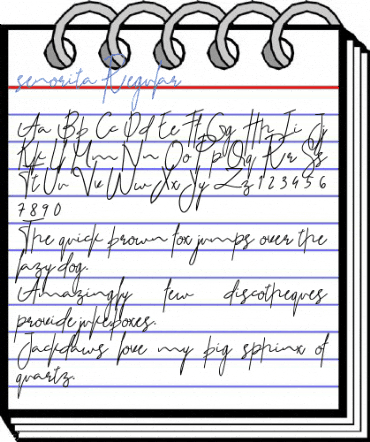 senorita Regular
Aa Bb Cc Dd Ee Ff Gg Hh Ii Jj
Kk Ll Mm Nn Oo Pp Qq Rr Ss
Tt Uu Vv Ww Xx Yy Zz 1 2 3 4 5 6
7 8 9 0
The quick brown fox jumps over the
lazy dog.
Amazingly few discotheques
provide jukeboxes.
Jackdaws love my big sphinx of
quartz.